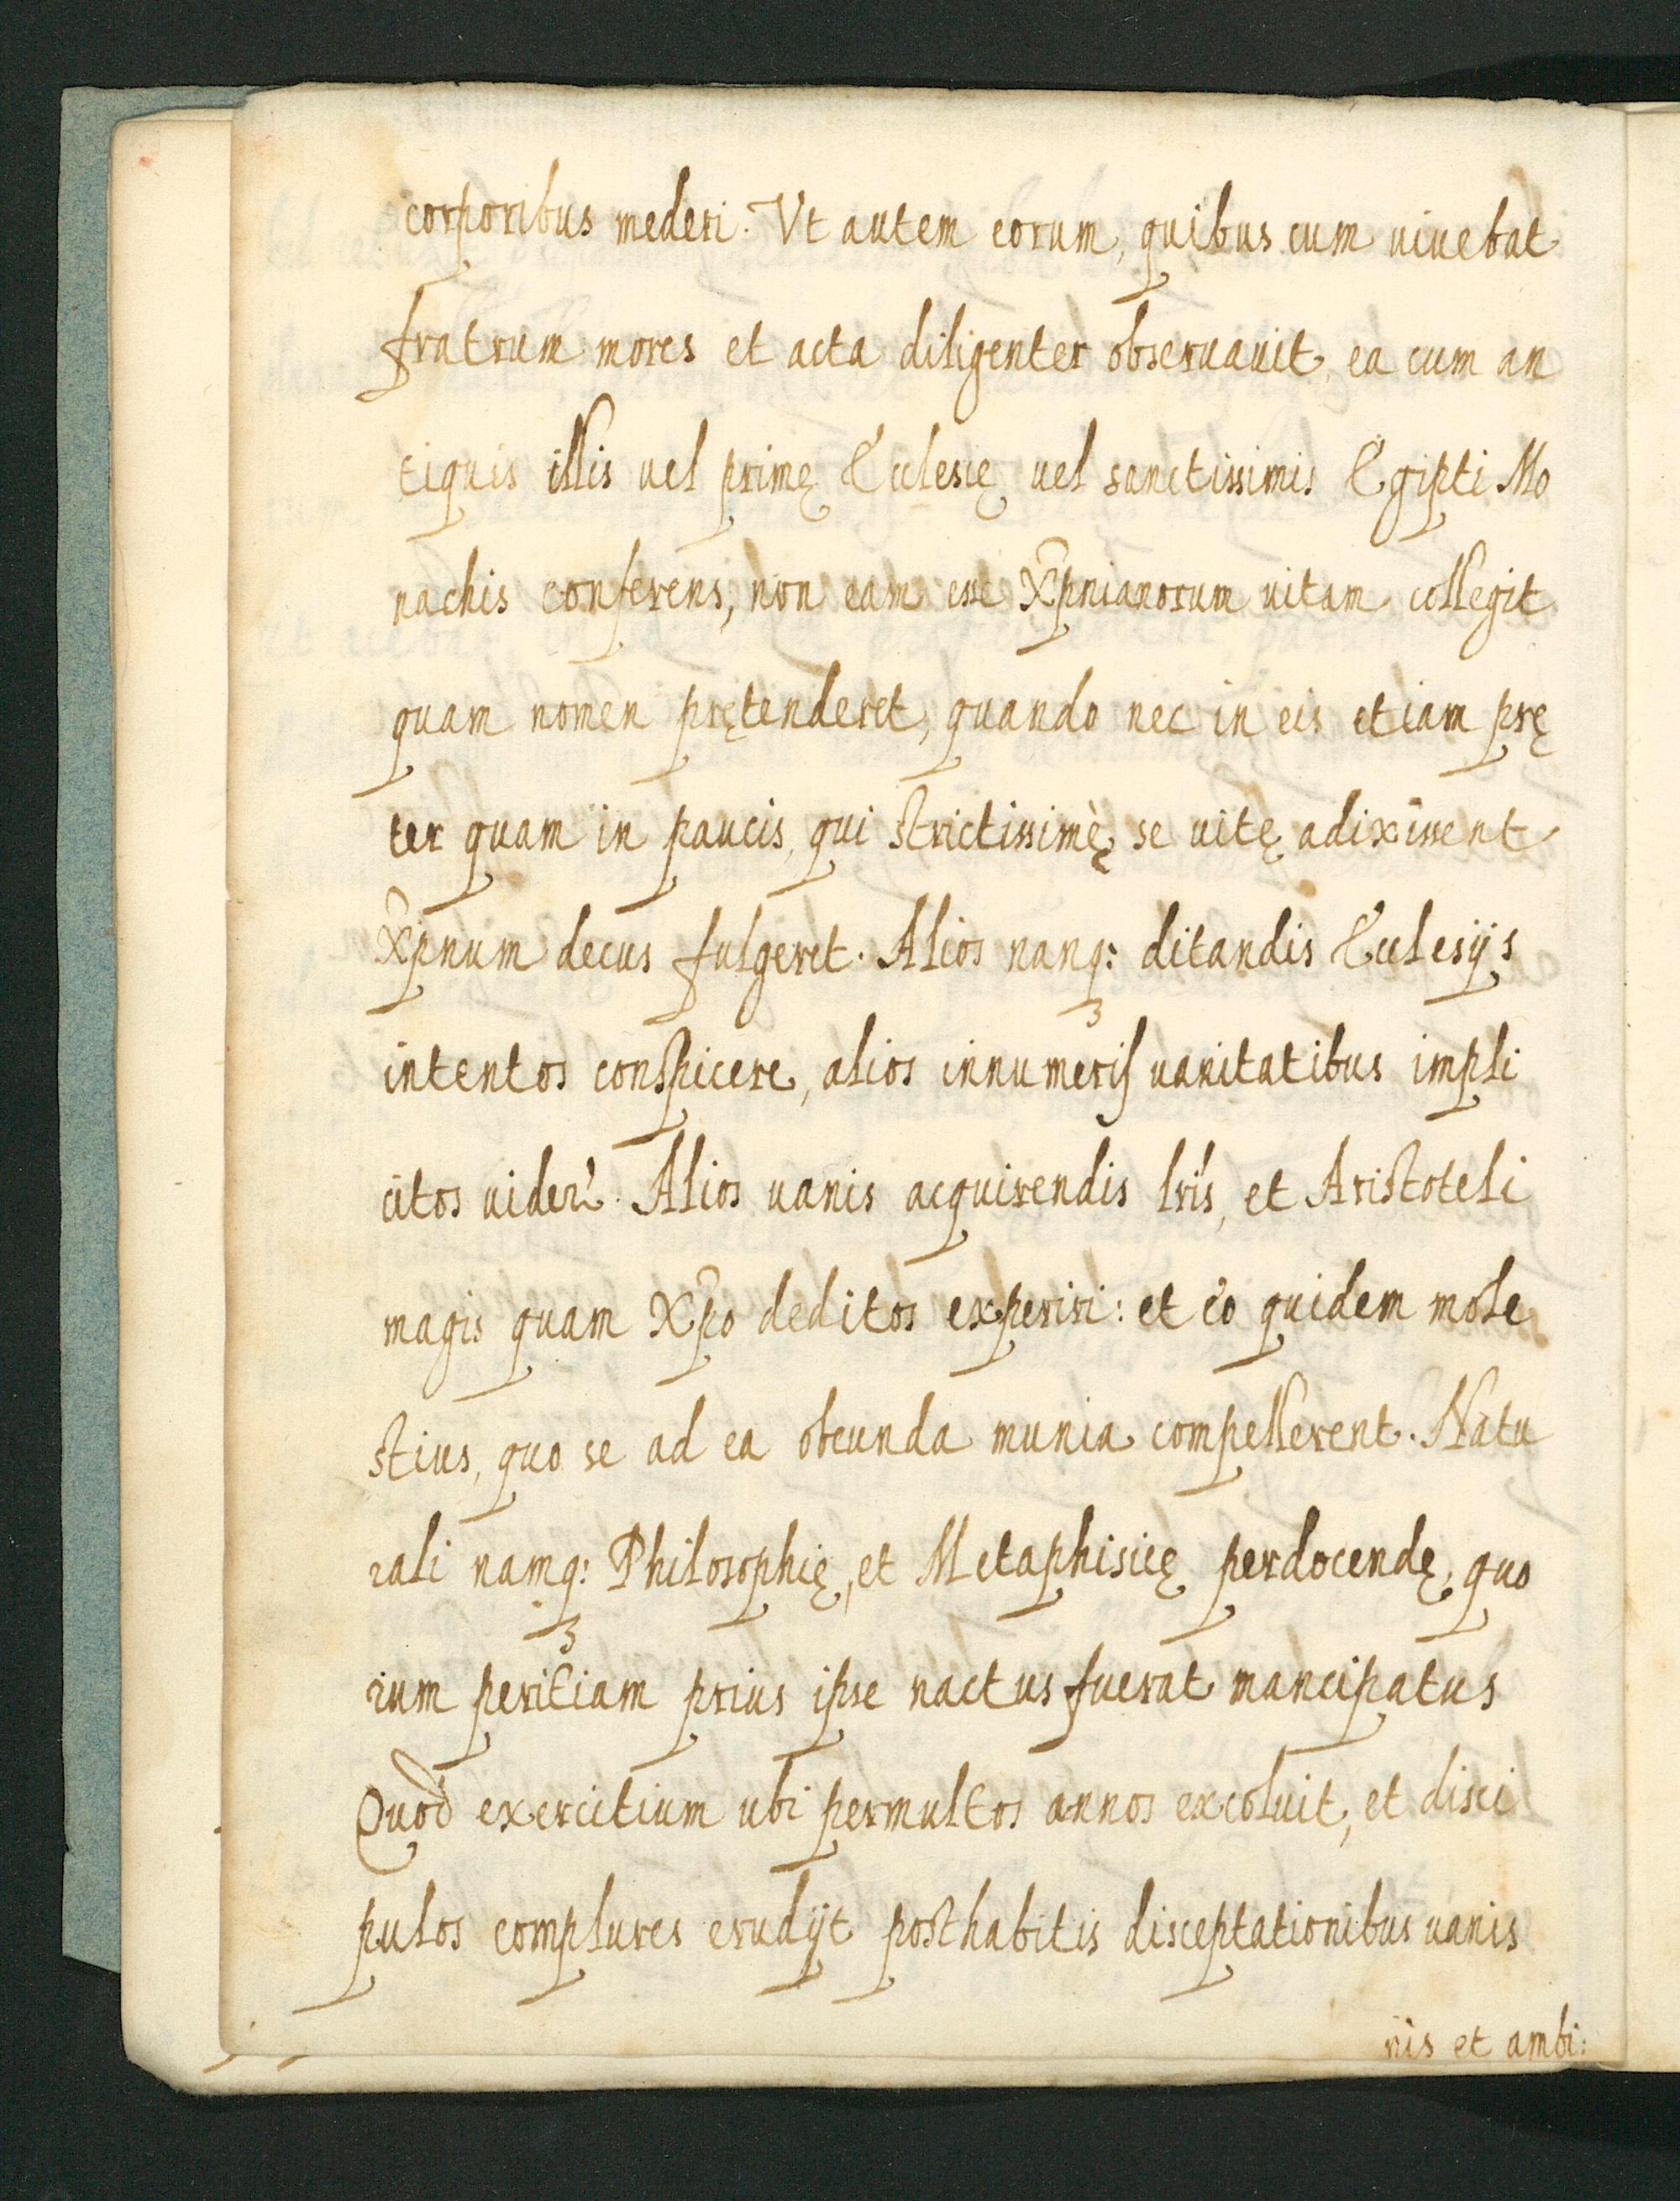 corporibus mederi. Vt autem eorum, quibus cum uiuebat
fratrum mores et acta diligenter obseruauit, ea cum an
tiquis illis uel primę Ecclesię uel sanctissimis Egipti Mo
nachis conferens, non eam esse Xp̃nianorum uitam collegit
quam nomen prętenderet, quando nec in eis etiam prę
ter quam in paucis, qui strictissimę̀ se uitę adixissent
Xp̃num decus fulgeret. Alios nanq: ditandis Ecclesijs
intentos conspicere, alios innumeris uanitatibus impli
citos uider̃. Alios uanis acquirendis lr̃is, et Aristoteli
magis quam Xp̃o deditos experiri: et eo quidem mole
stius, quo se ad ea obeunda munia compellerent. Natu
rali namq: Philosophię, et Metaphisicę perdocendę, quo
rum peritiam prius ipse nactus fuerat mancipatus
Quod exercitium ubi permultos annos excoluit, et disci
pulos complures erudijt posthabitis disceptationibus uanis
nis et ambi: